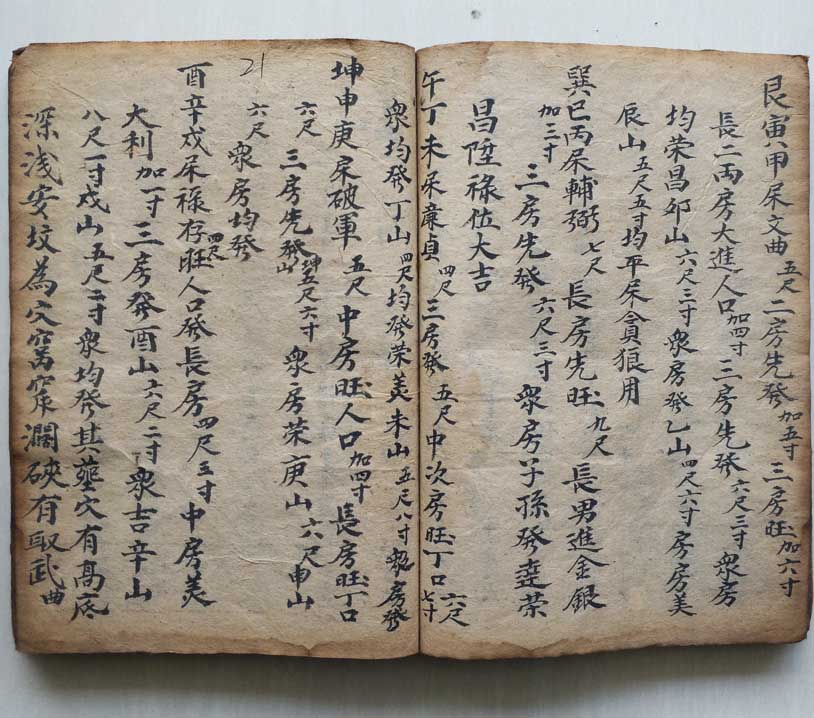 艮寅甲屎文曲五尺二房先發加五寸三房旺加六寸
長二兩房大進人口加四寸三房先發六尺三寸衆房
均荣昌卯山六尺三寸衆房發乙山四尺六寸房房美
辰山五尺五寸均平屎貪狼用
巽巳丙屎輔弼七尺長房先旺九尺長男進金銀
加三寸三房先發六尺三寸衆房子孫發達荣
昌陞禄位大吉
午丁未屎廉貞四尺三房發五尺中次房旺丁口六尺七寸
衆均發丁山四尺均發荣美未山五尺八寸衆房發
坤申庚屎破軍五尺中房旺人口加四寸長房旺丁口
六尺三房先發坤山五尺六寸衆房荣庚山六尺申山
六尺衆房均發
21
酉辛戍屎禄存四尺旺人口發長房四尺五寸中房美
大利加一寸三房發酉山六尺二寸衆吉辛山
八尺一寸戍山五尺二寸衆均發其塟穴有高底
深浅安坟為穴窩窄濶硤有取武曲